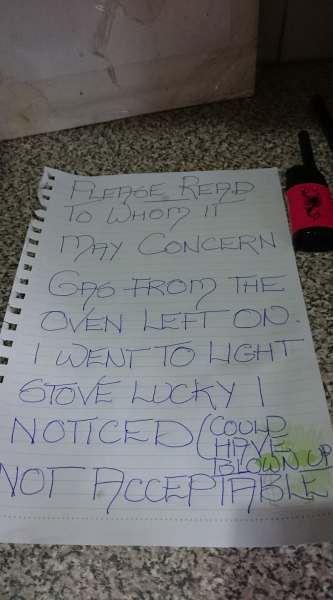 PLEASE READ
TO WHOM IT
MAY CONCERN
GAS FROM THE
OVEN LEFT ON.
I WENT TO LIGHT
STOVE LUCKY I
NOTICED (COULD
HAVE
BLOWN UP
NOT ACCEPTABLE